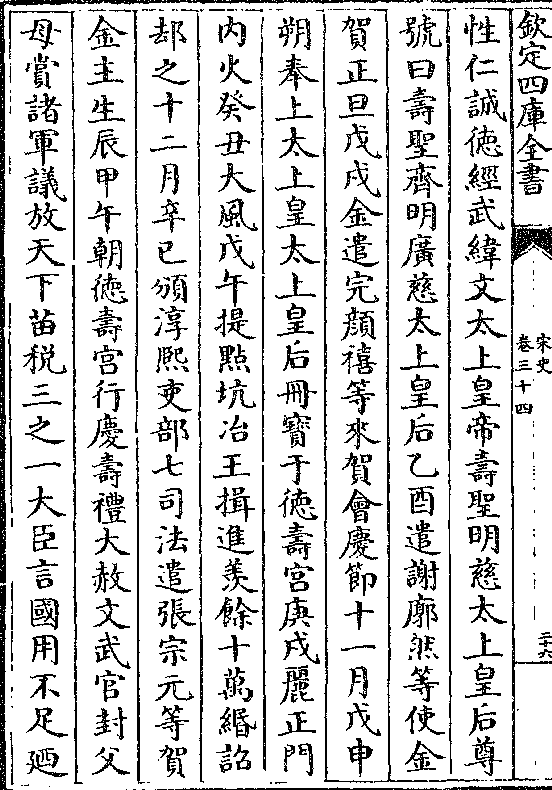 欽定四庫全書
宋史
卷三十四
二十六
性仁誠徳經武緯文太上皇帝壽聖明慈太上皇后尊
號曰壽聖齊明廣慈太上皇后乙酉遣謝廓然等使金
賀正旦戊戌金遣完顔禧等來賀會慶節十一月戊申
朔奉上太上皇太上皇后冊寳于徳壽宮庚戌麗正門
内火癸丑大風戊午提點坑冶王揖進羨餘十萬緡詔
却之十二月辛巳頒淳熙吏部七司法遣張宗元等賀
金主生辰甲午朝徳壽宮行慶壽禮大赦文武官封父
母賞諸軍議放天下苗税三之一大臣言國用不足廼